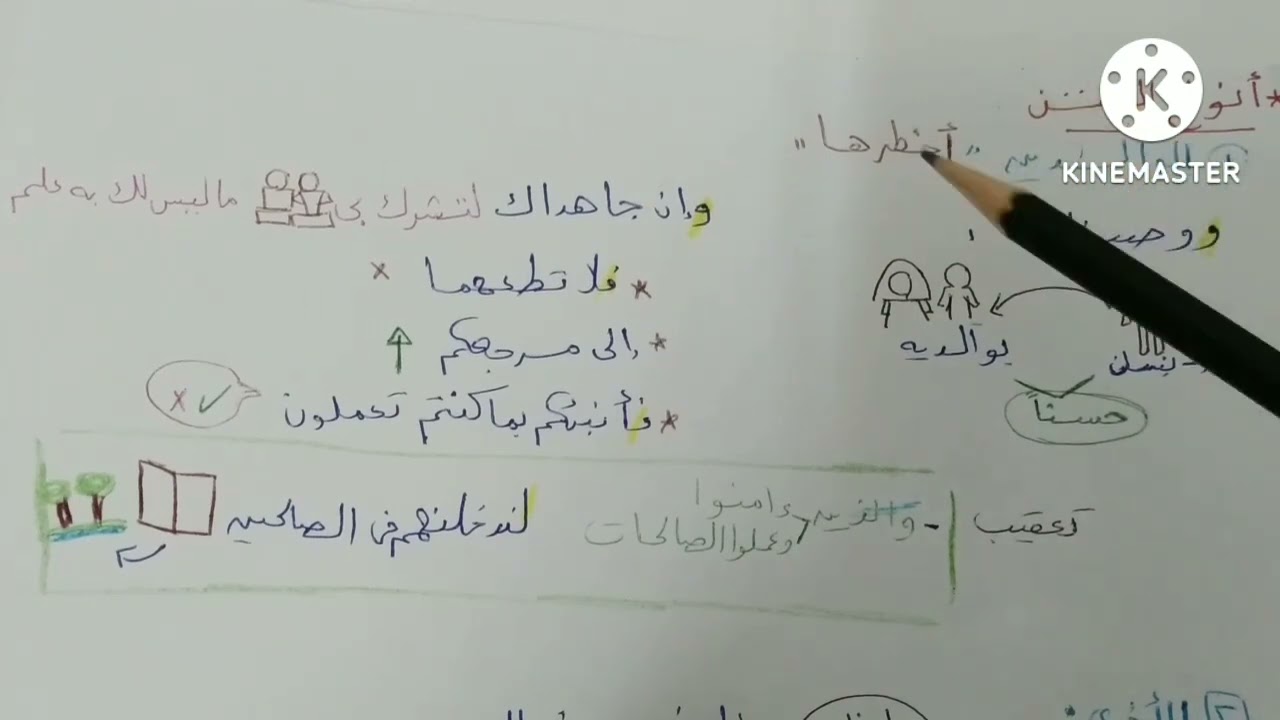 KINEMASTER
"أخطرها"
بوالديه
حسناً
وإن جاهداك لتشرك بى ماليس لك به علم
* فلا تطعهما ×
* إلى مرجعكم
* فأنبئكم بما كنتم تعملون
تعقيب
- والذين ءامنوا
وعملوا الصالحات
لندخلنهم فى الصالحين